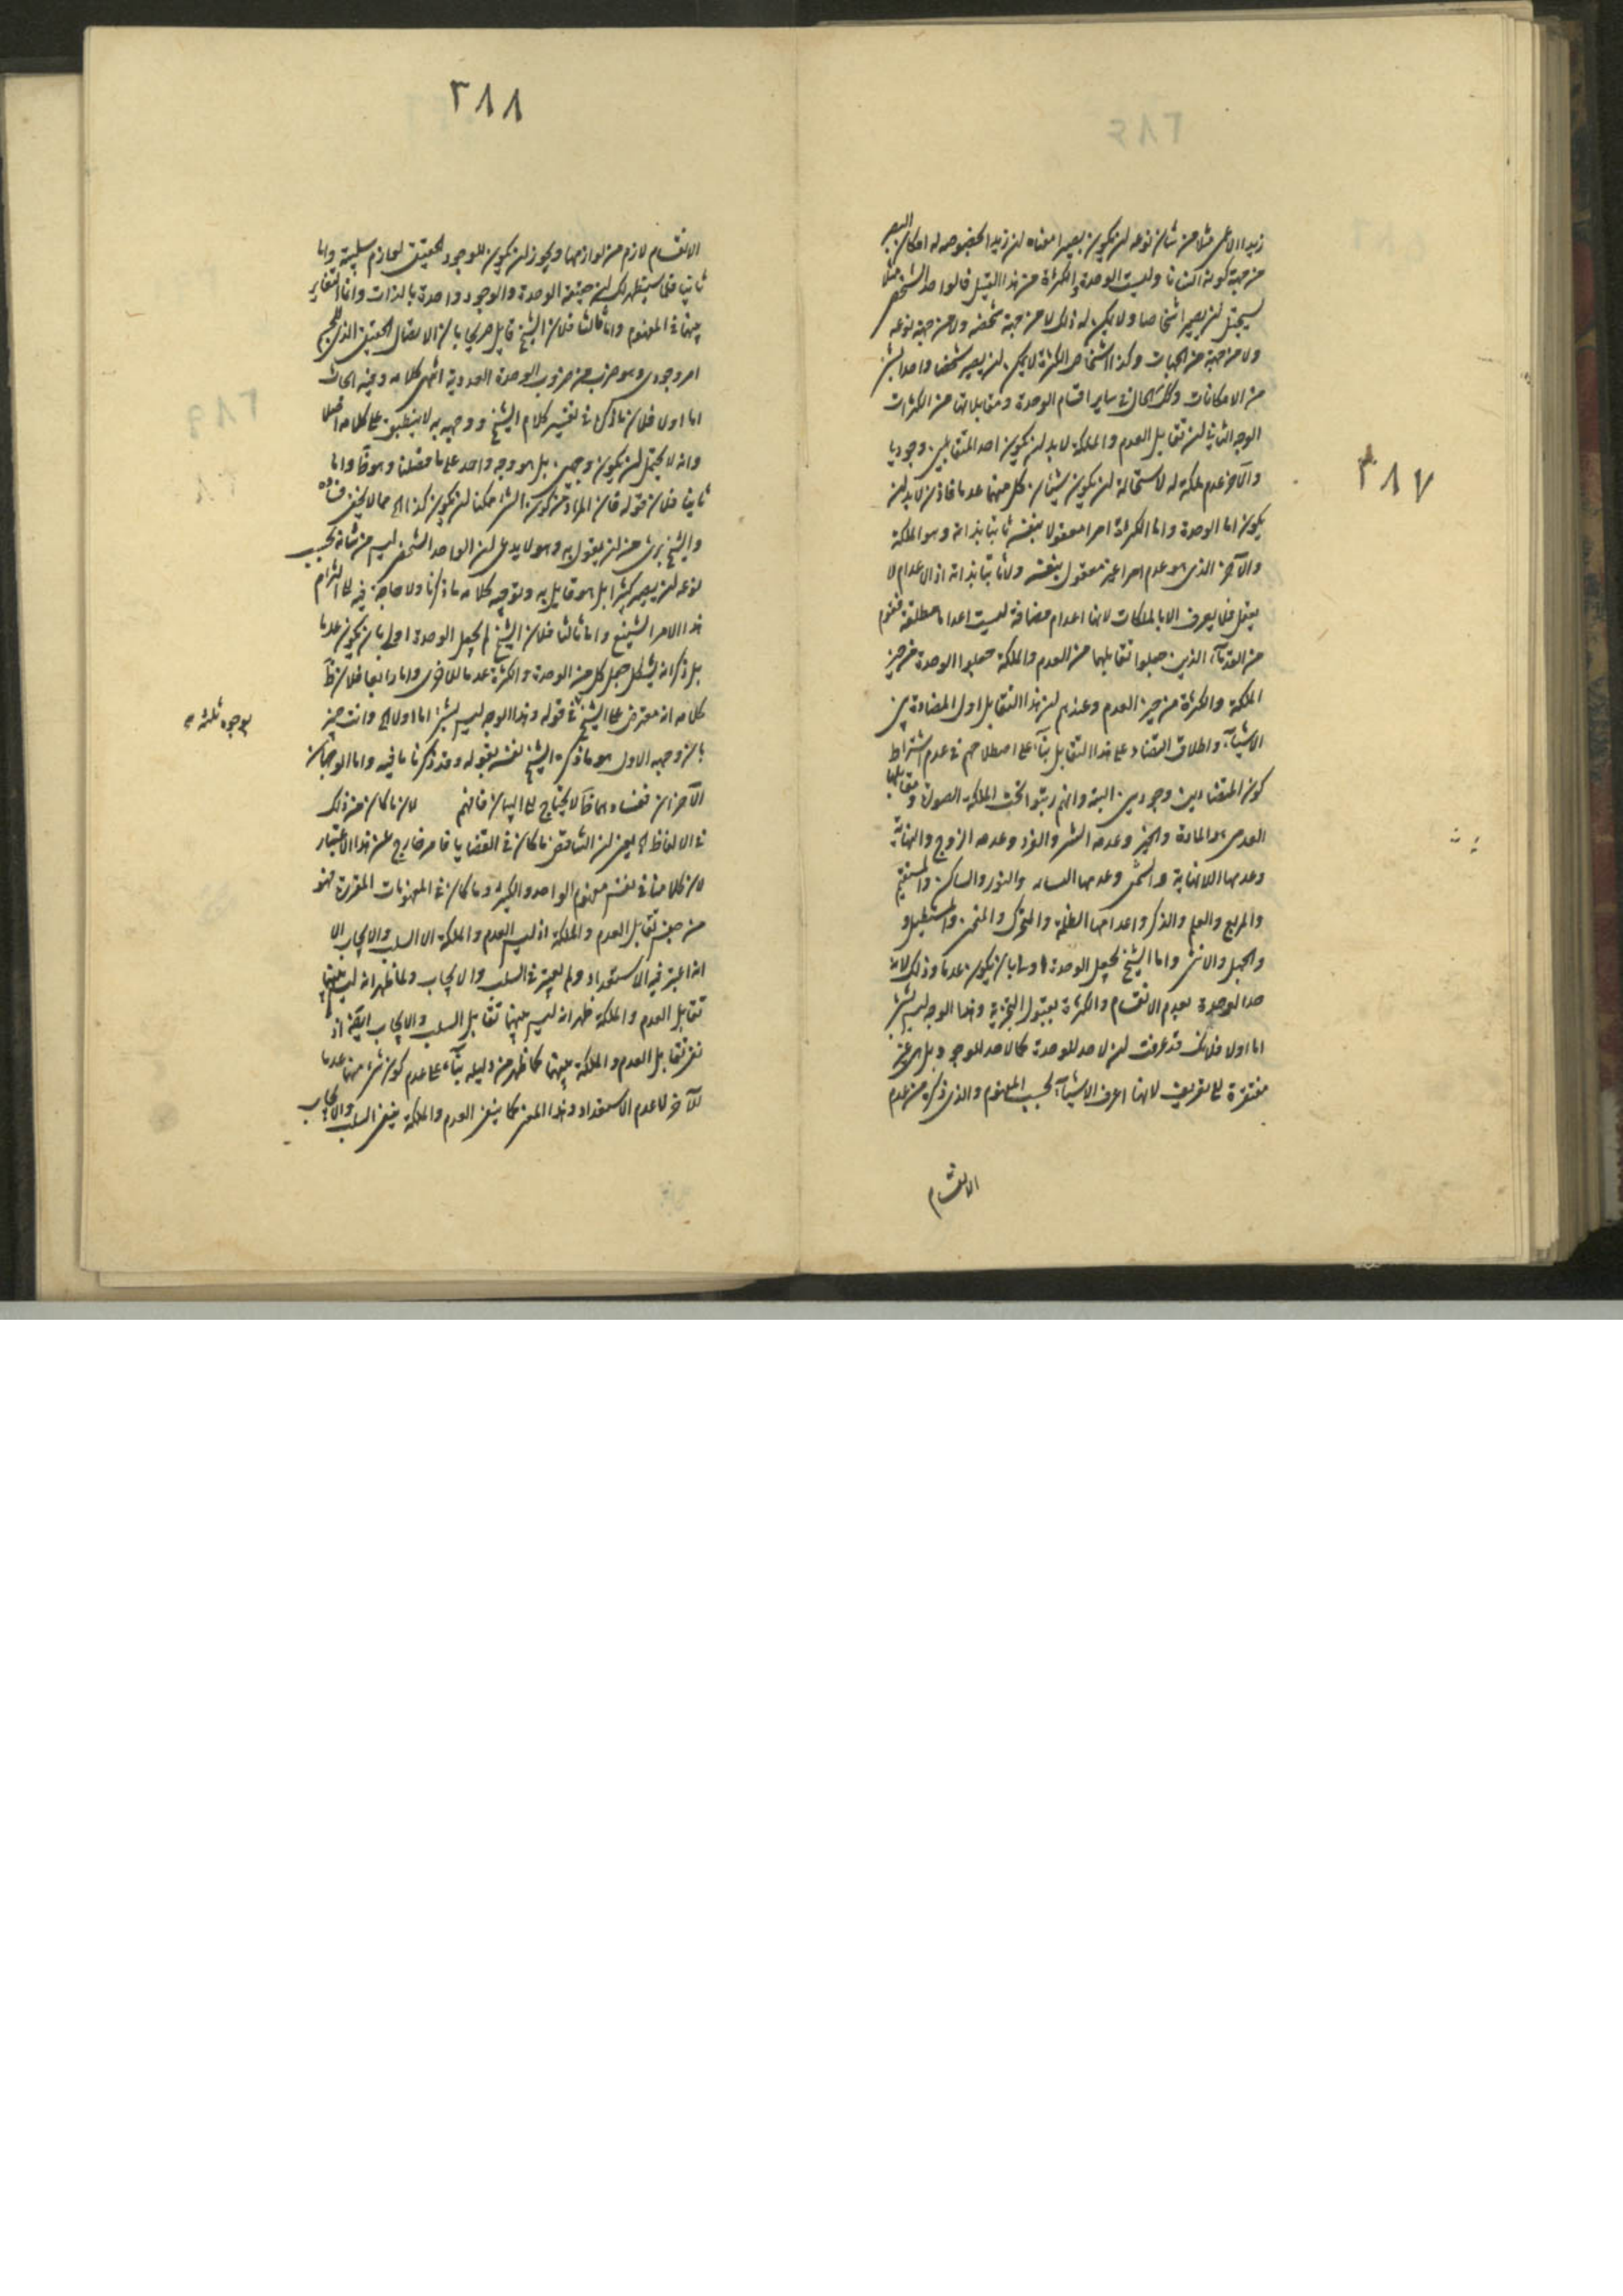 ٣٨٧
زيدا الاعمى مثلا من شان نوعه ان يكون بصيرا معناه ان زيدا بخصوصه له امكان البصر
من جهة كونه انسانا وليست الوحدة والكثرة من هذا القبيل فالواحد الشخصى مثلا
يستحيل ان يصير اشخاصا ولا يمكن له ذلك لا من جهة شخصه ولا من جهة نوعه
ولا من جهة من الجهات وكذا اشخاص الكثرة لا يمكن ان يصير شخصا واحدا بشئ
من الامكانات وكذا الحال فى ساير اقسام الوحدة ومقابلاتها من الكثرات
الوجه الثانى ان تقابل العدم والملكة لا بد ان يكون احد المتقابلين وجوديا
والآخر عدم ملكة له لاستحالة ان يكون شيئان كل منهما عدما فاذن لا بد ان
يكون اما الوحدة واما الكثرة امرا معقولا بنفسه ثابتا بذاته وهو الملكة
والآخر الذى هو عدم امرا غير معقول بنفسه ولا ثابتا بذاته اذ الاعدام لا
يعقل فلا يعرف الا بالملكات لانها اعدام مضافة ليست اعداما مطلقة فقوم
من القدمآء الذين جعلوا تقابلهما من العدم والملكة جعلوا الوحدة من حيز
الملكة والكثرة من حيز العدم وعندهم ان هذا التقابل اول المضادة بين
الاشيآء واطلاق التضاد على هذا التقابل بنآء على اصطلاحهم فى عدم اشتراط
كون المتضادين وجوديين البتة وانهم رتبوا تحت الملكة الصورة ومقابلها
العدمى هو المادة والخير وعدمه الشر والفرد وعدمه الزوج والنهاية
وعدمها اللانهاية واليمين وعدمها اليسار والنور والساكن والمستقيم
والمربع والعلم والذكر واعدامها الظلمة والمتحرك والمنحنى والمستطيل و
والجهل والانثى واما الشيخ فجعل الوحدة اولى بان يكون عدما وذلك لانه
حد الوحدة بعدم الانقسام والكثرة بقبول التجزية وهذا الوجه ليس بشئ
اما اولا فلانك قد عرفت ان لا حد للوحدة كما لا حد للوجود بل هى غير
مفتقرة الى تعريف لانها اعرف الاشيآء بحسب المفهوم والذى ذكره من عدم
الانقسام
٣٨٨
الانقسام لازم من لوازمها ويجوز ان يكون للوجود الحقيقى لوازم سلبية واما
ثانيا فلما سيتظهر لك ان حقيقة الوحدة والوجود واحدة بالذات وانما التغاير
بينهما فى المفهوم واما ثالثا فلان الشيخ قايل صريحا بان الاتصال الحقيقى الذى للجسم
امر وجودى وهو ضرب من ضروب الوحدة العددية انتهى كلامه وفيه ابحاث
اما اولا فلان ما ذكره فى تفسير كلام الشيخ ووجهه به لا ينطبق على كلامه اصلا
وانه لا يحتمل ان يكون وجهين بل هو وجه واحد على ما فصلنا وهو ظ واما
ثانيا فلان قوله فان المراد من كون الشئ ممكنا ان يكون كذا اه مما لا يخفى فساده
والشيخ برئ من ان يقول به وهو لا يدعى ان الواحد الشخصى ليس من شانه بحسب
نوعه ان يصير كثيرا بل هو قايل به وتوجيه كلامه ما ذكرنا ولا حاجة فيه الى التزام
هذا الامر الشنيع واما ثالثا فلان الشيخ لم يجعل الوحدة اولى بان يكون عدما
بل ذكر انه يشكل جعل كل من الوحدة والكثرة عدما للاخرى واما رابعا فلان ظ
كلامه انه معترض على الشيخ فى قوله وهذا الوجه ليس بشئ اما اولا اه وانت خبير
بوجوه ثلثة
بان وجهه الاول هو ما ذكره الشيخ نفسه بقوله وقد ذكرنا ما فيه واما الوجهان
الآخران ففسادهما ظ لا يحتاج الى البيان فافهم لان ما كان من ذلك
فى الالفاظ اه يعنى ان التناقض ما كان فى القضايا فامر خارج عن هذا الاعتبار
لان كلامنا فى نفس مفهوم الواحد والكثير وما كان فى المفهومات المفردة فهو
من جنس تقابل العدم والملكة اذ ليس العدم والملكة الا السلب والايجاب الا
انه اعتبر فيه الاستعداد ولم يعتبر فى السلب والايجاب ولما ظهر انه ليس بينهما
تقابل العدم والملكة ظهر انه ليس بينهما تقابل السلب والايجاب ايضا اذ
نفى تقابل العدم والملكة بينهما كما ظهر من دليله بنآء على عدم كون شئ منهما عدما
للآخر لا عدم الاستعداد وهذا المعنى كما ينفى العدم والملكة ينفى السلب والايجاب